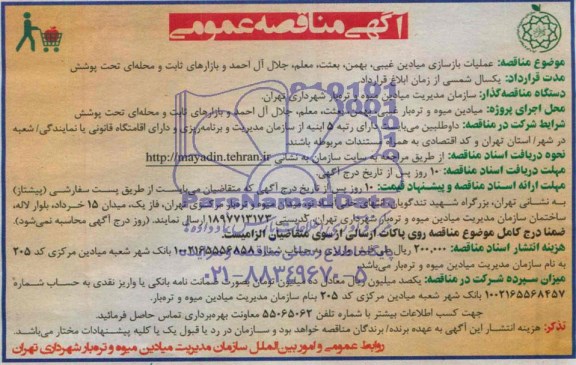 آگهی مناقصه عمومی
موضوع مناقصه: عملیات بازسازی میادین غیبی، بهمن، بعثت، معلم، جلال آل احمد و بازارهای ثابت و محله‌ای تحت پوشش
مدت قرارداد: یکسال شمسی از زمان ابلاغ قرارداد
دستگاه مناقصه‌گذار: سازمان مدیریت میادین میوه و تره‌بار شهرداری تهران
محل اجرای پروژه: میادین میوه و تره‌بار غیبی، بهمن، بعثت، معلم، جلال آل احمد و بازارهای ثابت و محله‌ای تحت پوشش
شرایط شرکت در مناقصه: داوطلبین می‌بایست دارای رتبه ۵ ابنیه از سازمان مدیریت و برنامه‌ریزی و دارای اقامتگاه قانونی یا نمایندگی/ شعبه
در شهر/ استان تهران و کد اقتصادی به همراه مستندات مربوطه باشند
نحوه دریافت اسناد مناقصه: از طریق مراجعه به سایت سازمان به نشانی http://mayadin.tehran.ir
مهلت دریافت اسناد مناقصه: ۱۰ روز پس از تاریخ درج آگهی.
مهلت ارائه اسناد مناقصه و پیشنهاد قیمت: ۱۰ روز پس از تاریخ درج آگهی که متقاضیان می‌بایست از طریق پست سفارشی (پیشتاز)
به نشانی تهران، بزرگراه شهید تندگویان تهران، فاز یک، میدان ۱۵ خرداد، بلوار لاله،
ساختمان سازمان مدیریت میادین میوه و تره‌بار شهرداری تهران کدپستی ۱۸۹۷۷۱۳۱۷۳ ارسال نمایند. (روز درج آگهی محاسبه نمی‌شود).
ضمنا درج کامل موضوع مناقصه روی پاکات ارسالی از سوی متقاضیان الزامیست.
هزینه انتشار اسناد مناقصه: ۲۰۰.۰۰۰ ریال ۱۰۰۲۱۶۵۵۶۸۵۸ بانک شهر شعبه میادین مرکزی کد ۲۰۵
به نام سازمان مدیریت میادین میوه و تره‌بار می‌باشد.
میزان سپرده شرکت در مناقصه: یکصد میلیون ریال معادل ده میلیون تومان بصورت ضمانت نامه بانکی یا واریز نقدی به حساب شماره
۱۰۰۲۱۶۵۵۶۸۴۵۷ بانک شهر شعبه میادین مرکزی کد ۲۰۵ بنام سازمان مدیریت میادین میوه و تره‌بار.
جهت کسب اطلاعات بیشتر با شماره تلفن ۵۵۰۶۵۰۶۲ معاونت بهره‌برداری تماس حاصل فرمائید.
تذکر: هزینه انتشار این آگهی به عهده برنده/ برندگان مناقصه خواهد بود و سازمان در رد یا قبول یک یا کلیه پیشنهادات مختار می‌باشد.
روابط عمومی و امور بین‌الملل سازمان مدیریت میادین میوه و تره‌بار شهرداری تهران
ParsNamadData
۰۲۱-۸۸۳۴۹۶۷۰-۵